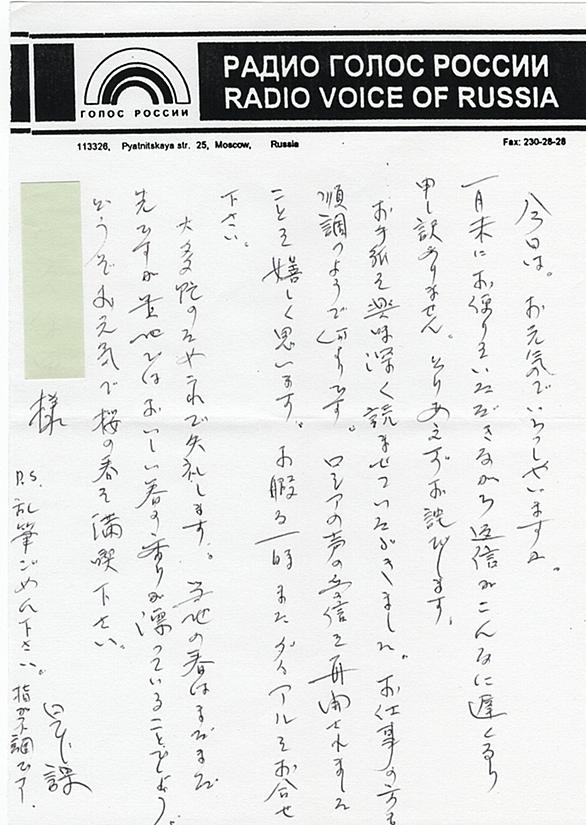 ГОЛОС РОССИИ
РАДИО ГОЛОС РОССИИ
RADIO VOICE OF RUSSIA
113326, Pyatnitskaya str. 25, Moscow, Russia
Fax: 230-28-28
今日は。お元気でいらっしゃいますか。
一月末にお便りをいただきながら返信がこんなに遅くなり
申し訳ありません。とりあえずお詫びします。
お手紙を興味深く読ませていただきました。お仕事の方も
順調のようで何よりです。ロシアの声の受信を再開されました
ことを嬉しく思います。お暇な時またダイアルをお合せ
下さい。
大多忙のためこれで失礼します。当地の春はまだまだ
先ですが貴地ではおいしい春の香りが漂っていることでしょう。
どうぞお元気で桜の春を満喫下さい。
様
日本課
P.S. 乱筆ごめん下さい。指が不調です。